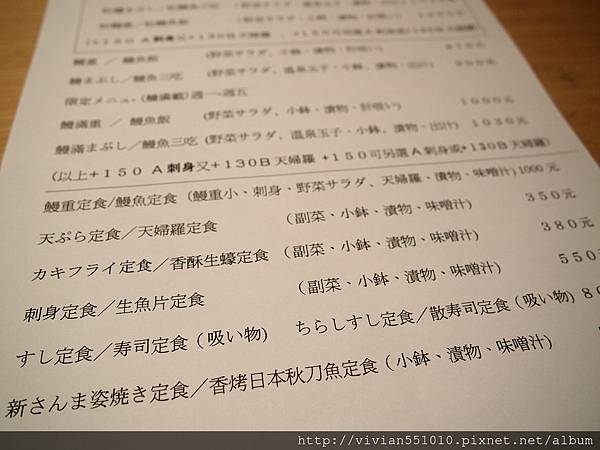 鰻重 ／ 鰻魚飯 (野菜サラダ、小鉢、漬物、肝吸い)
鰻まぶし／鰻魚三吃 (野菜サラダ、温泉玉子、小鉢、漬物、出汁)
限定メニュー(鰻満載)週一~週五
鰻満重 ／ 鰻魚飯 (野菜サラダ、小鉢、漬物、肝吸い) 1000元
鰻満まぶし／鰻魚三吃 (野菜サラダ、温泉玉子、小鉢、漬物、出汁) 1030元
(以上+150 A刺身又+130B天婦羅 +150可另選A刺身或+130B天婦羅)
鰻重定食/鰻魚定食 (鰻重小、刺身、野菜サラダ、天婦羅、漬物、味噌汁) 1000元
天ぷら定食／天婦羅定食 (副菜、小鉢、漬物、味噌汁) 350元
カキフライ定食／香酥生蠔定食 (副菜、小鉢、漬物、味噌汁) 380元
刺身定食／生魚片定食 (副菜、小鉢、漬物、味噌汁) 550
すし定食／寿司定食 (吸い物) ちらしすし定食／散寿司定食 (吸い物) 80
新さんま姿焼き定食／香烤日本秋刀魚定食 (小鉢、漬物、味噌汁)
http://vivian551010.pixnet.net/album